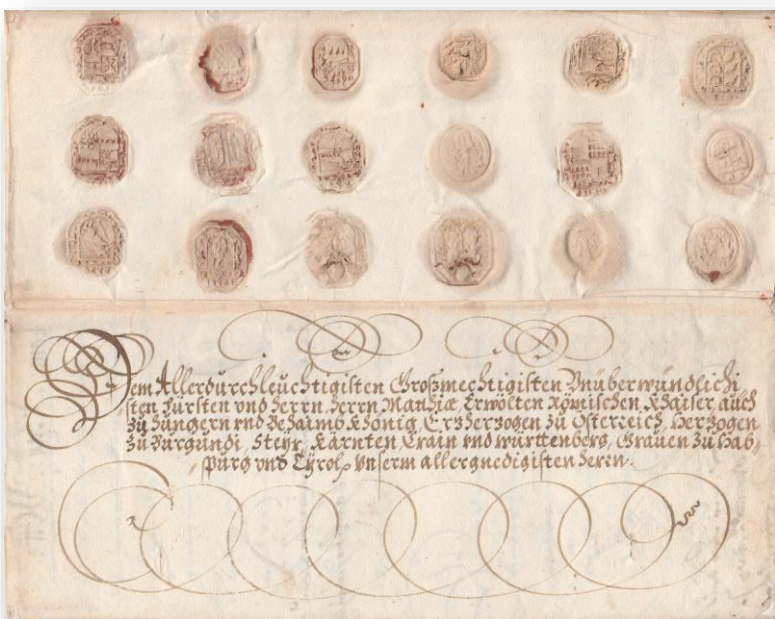 Dem Allerdurchleuchtigisten Großmechtigisten Vnüberwündlichi
sten Fürsten vnd herrn, herrn Mathiæ, Erwölten Römischen Khaiser, auch
zu Hungern vnd Behaimb König, Erzherzogen zu Österreich, Herzogen
zu Burgundi, Steyr, Kärnten, Crain vnd württenberg, Grauen zu Hab„
„ spurg vnd Tyrol, Vnserm allergnedigisten herrn.